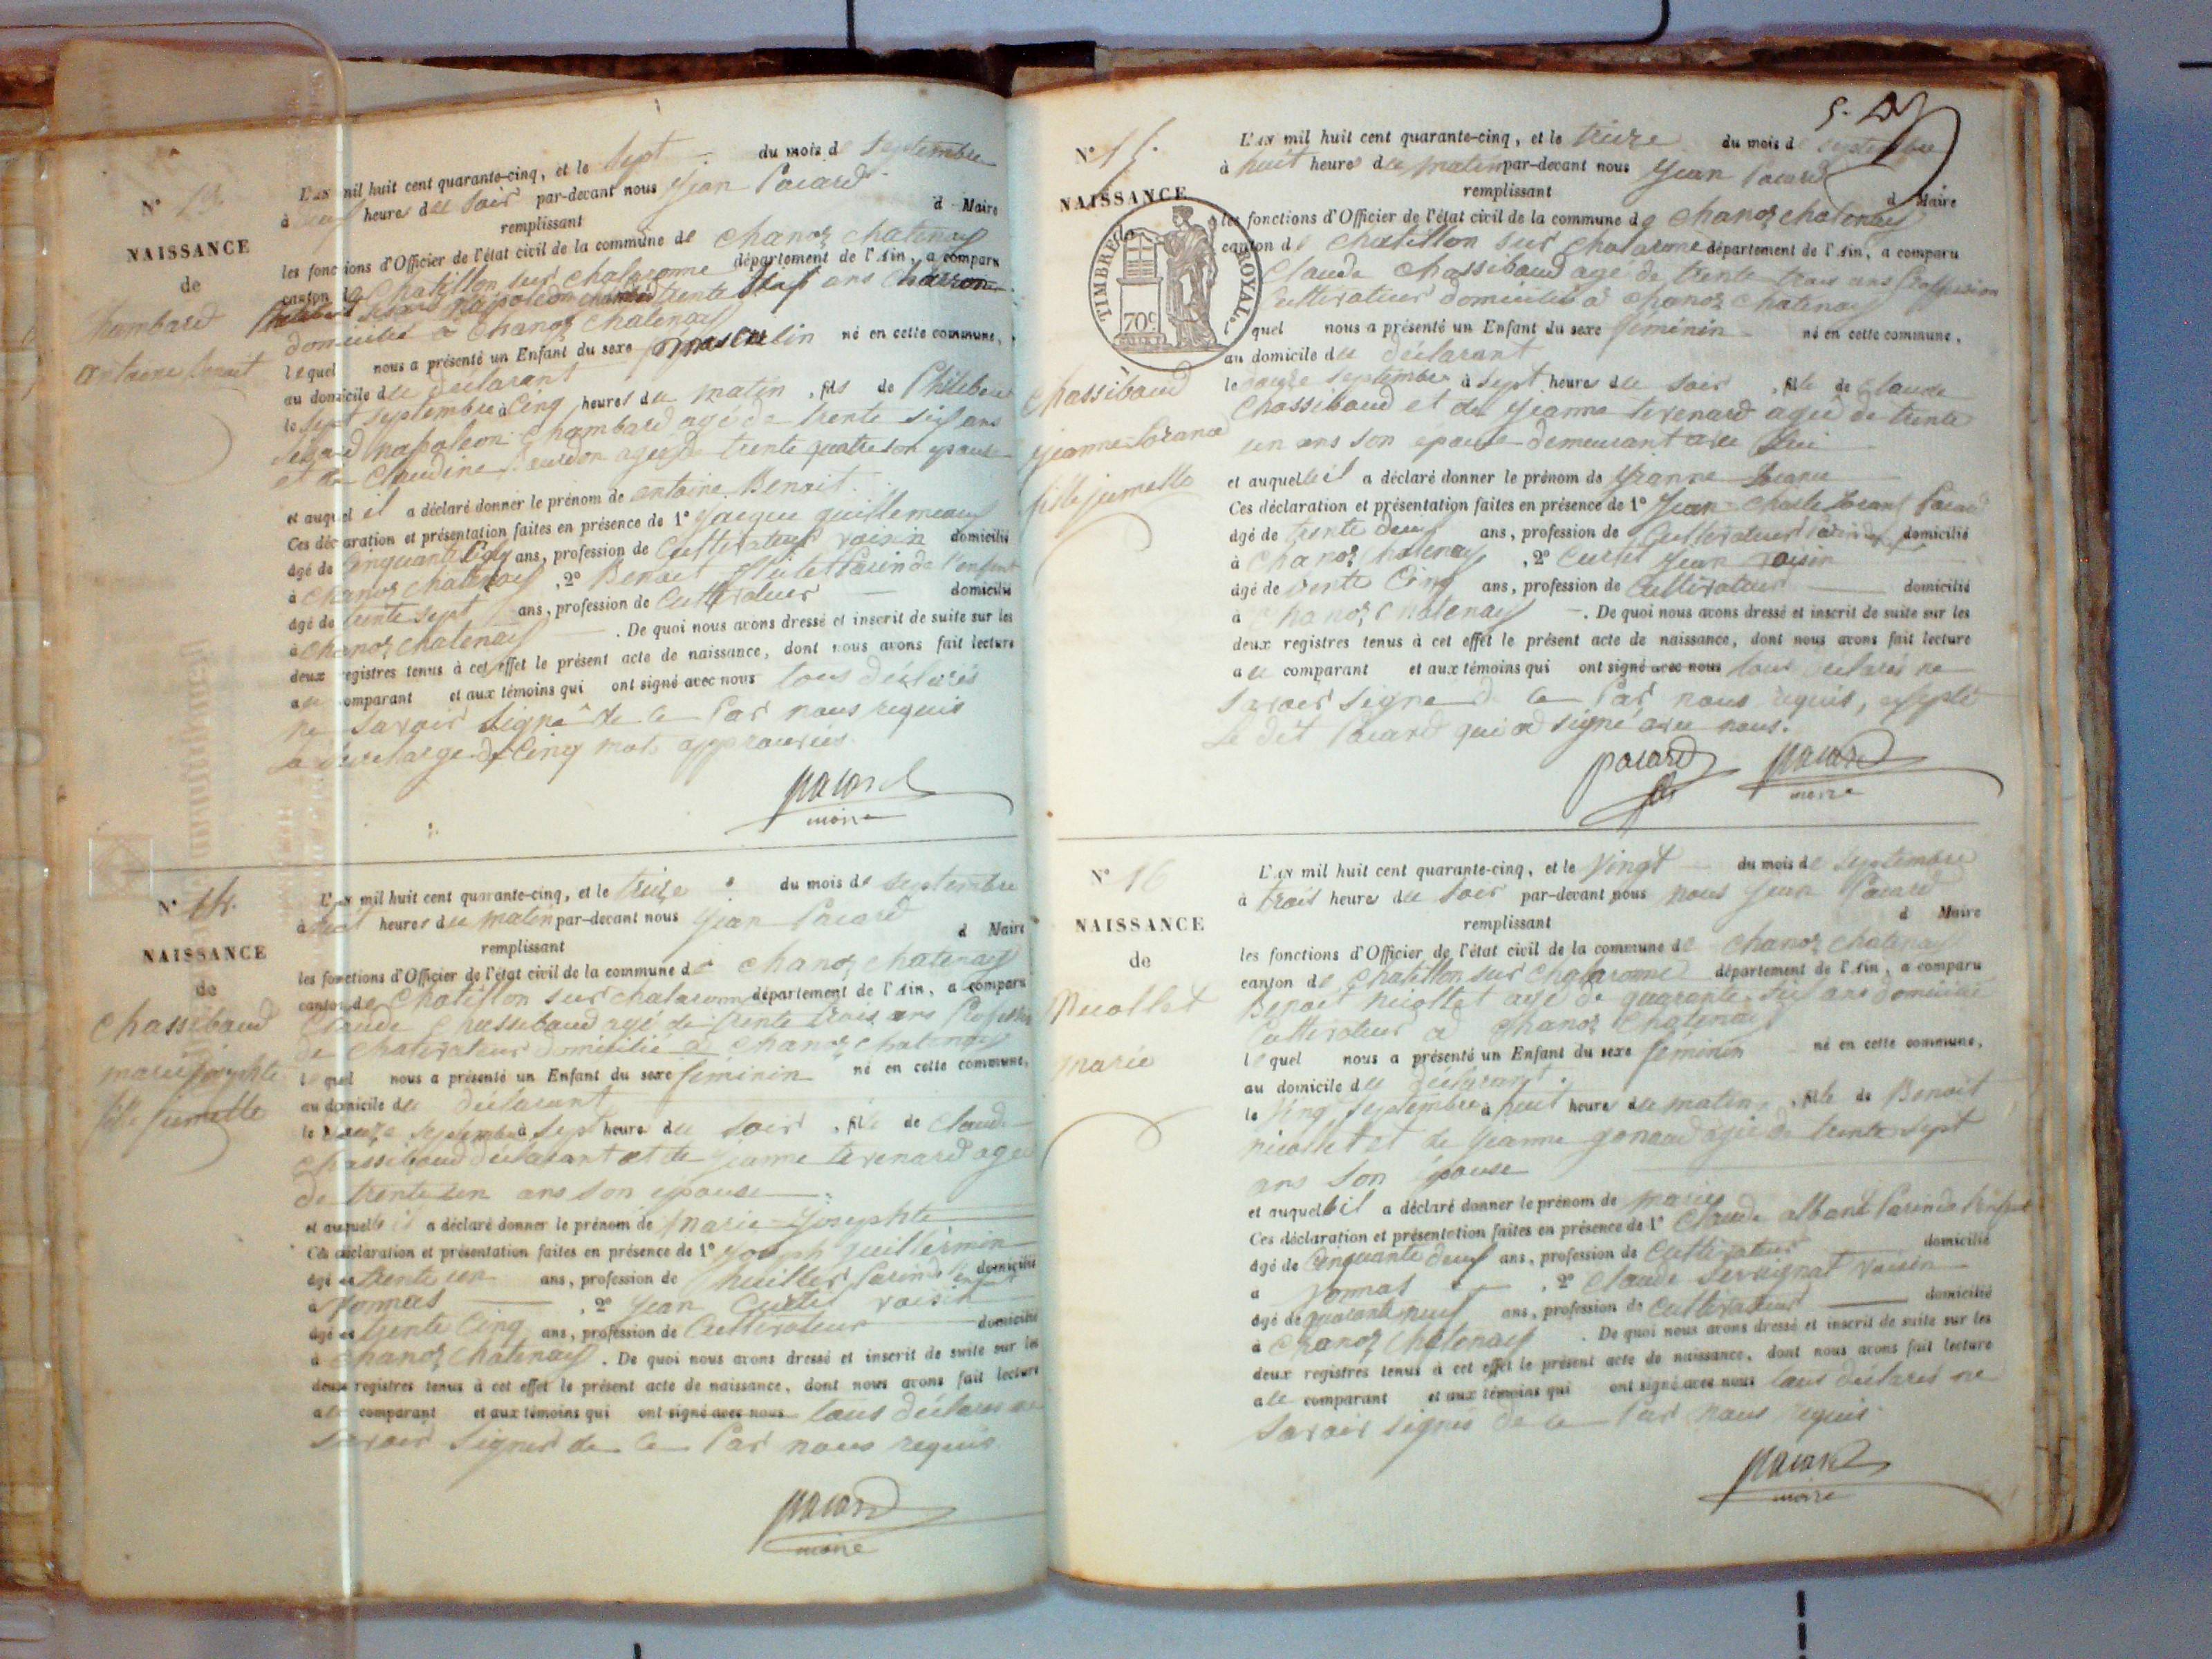 N° 13.
NAISSANCE
de
Chambard
antoine benoit
L'AN mil huit cent quarante-cinq, et le sept du mois de septembre
à heures du soir par-devant nous Jean Pacard
remplissant d Maire
les fonctions d'Officier de l'état civil de la commune de chanoz chatenay
canton de Chatillon sur chalaronne département de l'Ain, a comparu
napoleon chambard trente six ans charron
domicilié à Chanoz Chatenay
lequel nous a présenté un Enfant du sexe masculin né en cette commune,
au domicile du déclarant
le sept septembre à cinq heures du matin, fils de Philibert
napoleon Chambard agé de trente six ans
et de Claudine agée de trente quatre son epouse
et auquel il a déclaré donner le prénom de antoine Benoit
Ces déclaration et présentation faites en présence de 1° Jacque guillemeau
âgé de cinquante ans, profession de Cultivateur voisin domicilié
à chanoz chatenay, 2° Benoit Parin de l'enfant
âgé de trente sept ans, profession de Cultivateur domicilié
à chanoz chatenay. De quoi nous avons dressé et inscrit de suite sur les
deux registres tenus à cet effet le présent acte de naissance, dont nous avons fait lecture
au comparant et aux témoins qui ont signé avec nous tous déclarés
ne savoir signé de ce Par nous requis
la surcharge de Cinq mots approuvées
pacard
maire
N° 14.
NAISSANCE
de
Chassibaud
marie josephte
fille jumelle
L'AN mil huit cent quarante-cinq, et le treize du mois de septembre
à huit heures du matin par-devant nous Jean Pacard
remplissant d Maire
les fonctions d'Officier de l'état civil de la commune de chanoz chatenay
canton de Chatillon sur chalaronne département de l'Ain, a comparu
Claude Chassibaud agé de trente trois ans Profession
de Chativateur domicilié à chanoz chatenay
lequel nous a présenté un Enfant du sexe féminin né en cette commune,
au domicile du déclarant
le douze septembre à sept heures du soir, fille de Claude
Chassibaud déclarant et de Jeanne tevenard agée
de trente un ans son épouse
et auquelle il a déclaré donner le prénom de Marie Josephte
Ces déclaration et présentation faites en présence de 1° joseph guillermin
âgé de trente un ans, profession de huillier Parin de l'enfant domicilié
à Vonnas, 2° Jean Curtet voisin
âgé de trente cinq ans, profession de Cultivateur domicilié
à chanoz chatenay. De quoi nous avons dressé et inscrit de suite sur les
deux registres tenus à cet effet le présent acte de naissance, dont nous avons fait lecture
au comparant et aux témoins qui ont signé avec nous tous déclarés ne
savoir signer de ce Par nous requis
pacard
maire
N° 15.
NAISSANCE
TIMBRE ROYAL.
70c
Chassibaud
jeanne
fille jumelle
L'AN mil huit cent quarante-cinq, et le treize du mois de septembre
à huit heures du matin par-devant nous Jean Pacard
remplissant d Maire
les fonctions d'Officier de l'état civil de la commune de chanoz chatenay
canton de chatillon sur chalaronne département de l'Ain, a comparu
Claude Chassibaud agé de trente trois ans Proffession
Cultivateur domicilié à chanoz chatenay
quel nous a présenté un Enfant du sexe féminin né en cette commune,
au domicile du déclarant
le douze septembre à sept heures du soir, fille de Claude
Chassibaud et de Jeanne tevenard agée de trente
un ans son épouse demeurant avec lui
et auquelle il a déclaré donner le prénom de Jeanne
Ces déclaration et présentation faites en présence de 1° Jean Pacard
âgé de trente deux ans, profession de Cultivateur domicilié
à Chanoz Chatenay, 2° Curtet Jean voisin
âgé de trente Cinq ans, profession de Cultivateur domicilié
à Chanoz Chatenay. De quoi nous avons dressé et inscrit de suite sur les
deux registres tenus à cet effet le présent acte de naissance, dont nous avons fait lecture
au comparant et aux témoins qui ont signé avec nous tous déclarés ne
savoir signé de ce Par nous requis, excepté
Le dit Pacard qui a signé avec nous.
pacard pacard
maire
N° 16
NAISSANCE
de
Nicollet
marie
L'AN mil huit cent quarante-cinq, et le vingt du mois de septembre
à trois heures du soir par-devant nous nous Jean Pacard
remplissant d Maire
les fonctions d'Officier de l'état civil de la commune de chanoz chatenay
canton de chatillon sur chalaronne département de l'Ain, a comparu
Benoit nicollet agé de quarante six ans domicilié
Cultivateur à Chanoz Chatenay
lequel nous a présenté un Enfant du sexe féminin né en cette commune,
au domicile du déclarant
le vingt septembre à huit heures du matin, fille de Benoit
nicollet et de Jeanne agée de trente sept
ans son épouse
et auquelle il a déclaré donner le prénom de marie
Ces déclaration et présentation faites en présence de 1° Claude alband Parin de l'enfant
âgé de cinquante deux ans, profession de Cultivateur domicilié
à Vonnas, 2° Claude Servignat voisin
âgé de quarante neuf ans, profession de Cultivateur domicilié
à Chanoz Chatenay. De quoi nous avons dressé et inscrit de suite sur les
deux registres tenus à cet effet le présent acte de naissance, dont nous avons fait lecture
a le comparant et aux témoins qui ont signé avec nous tous déclarés ne
savoir signés de ce Par nous requis
pacard
maire